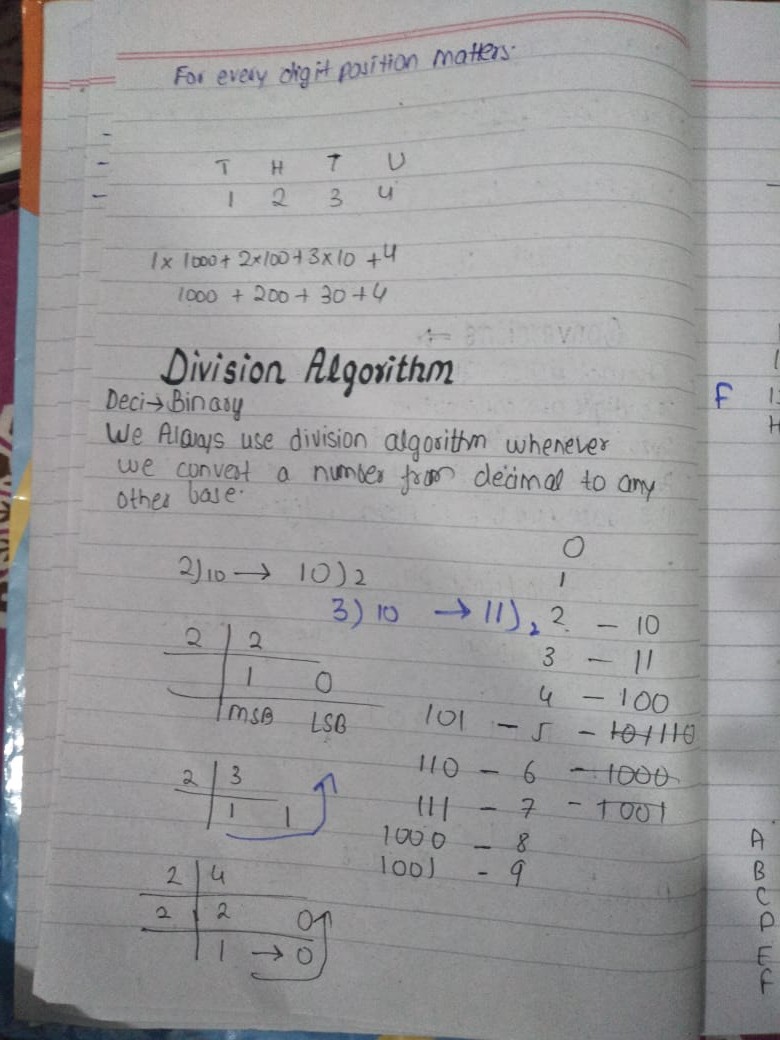 For every digit position matters.
T H T U
1 2 3 4
1 x 1000 + 2 x 100 + 3 x 10 + 4
1000 + 200 + 30 + 4
Division Algorithm
Deci → Binary
We Always use division algorithm whenever
we convert a number from decimal to any
other base.
0
2)10 → 10)2
1
3)10 → 11)2
2 - 10
2 | 2
3 - 11
1 0
4 - 100
MSB LSB
101 - 5 - 101110
2 | 3
110 - 6 - 1000
1 1
111 - 7 - 1001
1000 - 8
1001 - 9
2 | 4
2 | 2 0
1 → 0
F
A
B
C
D
E
F